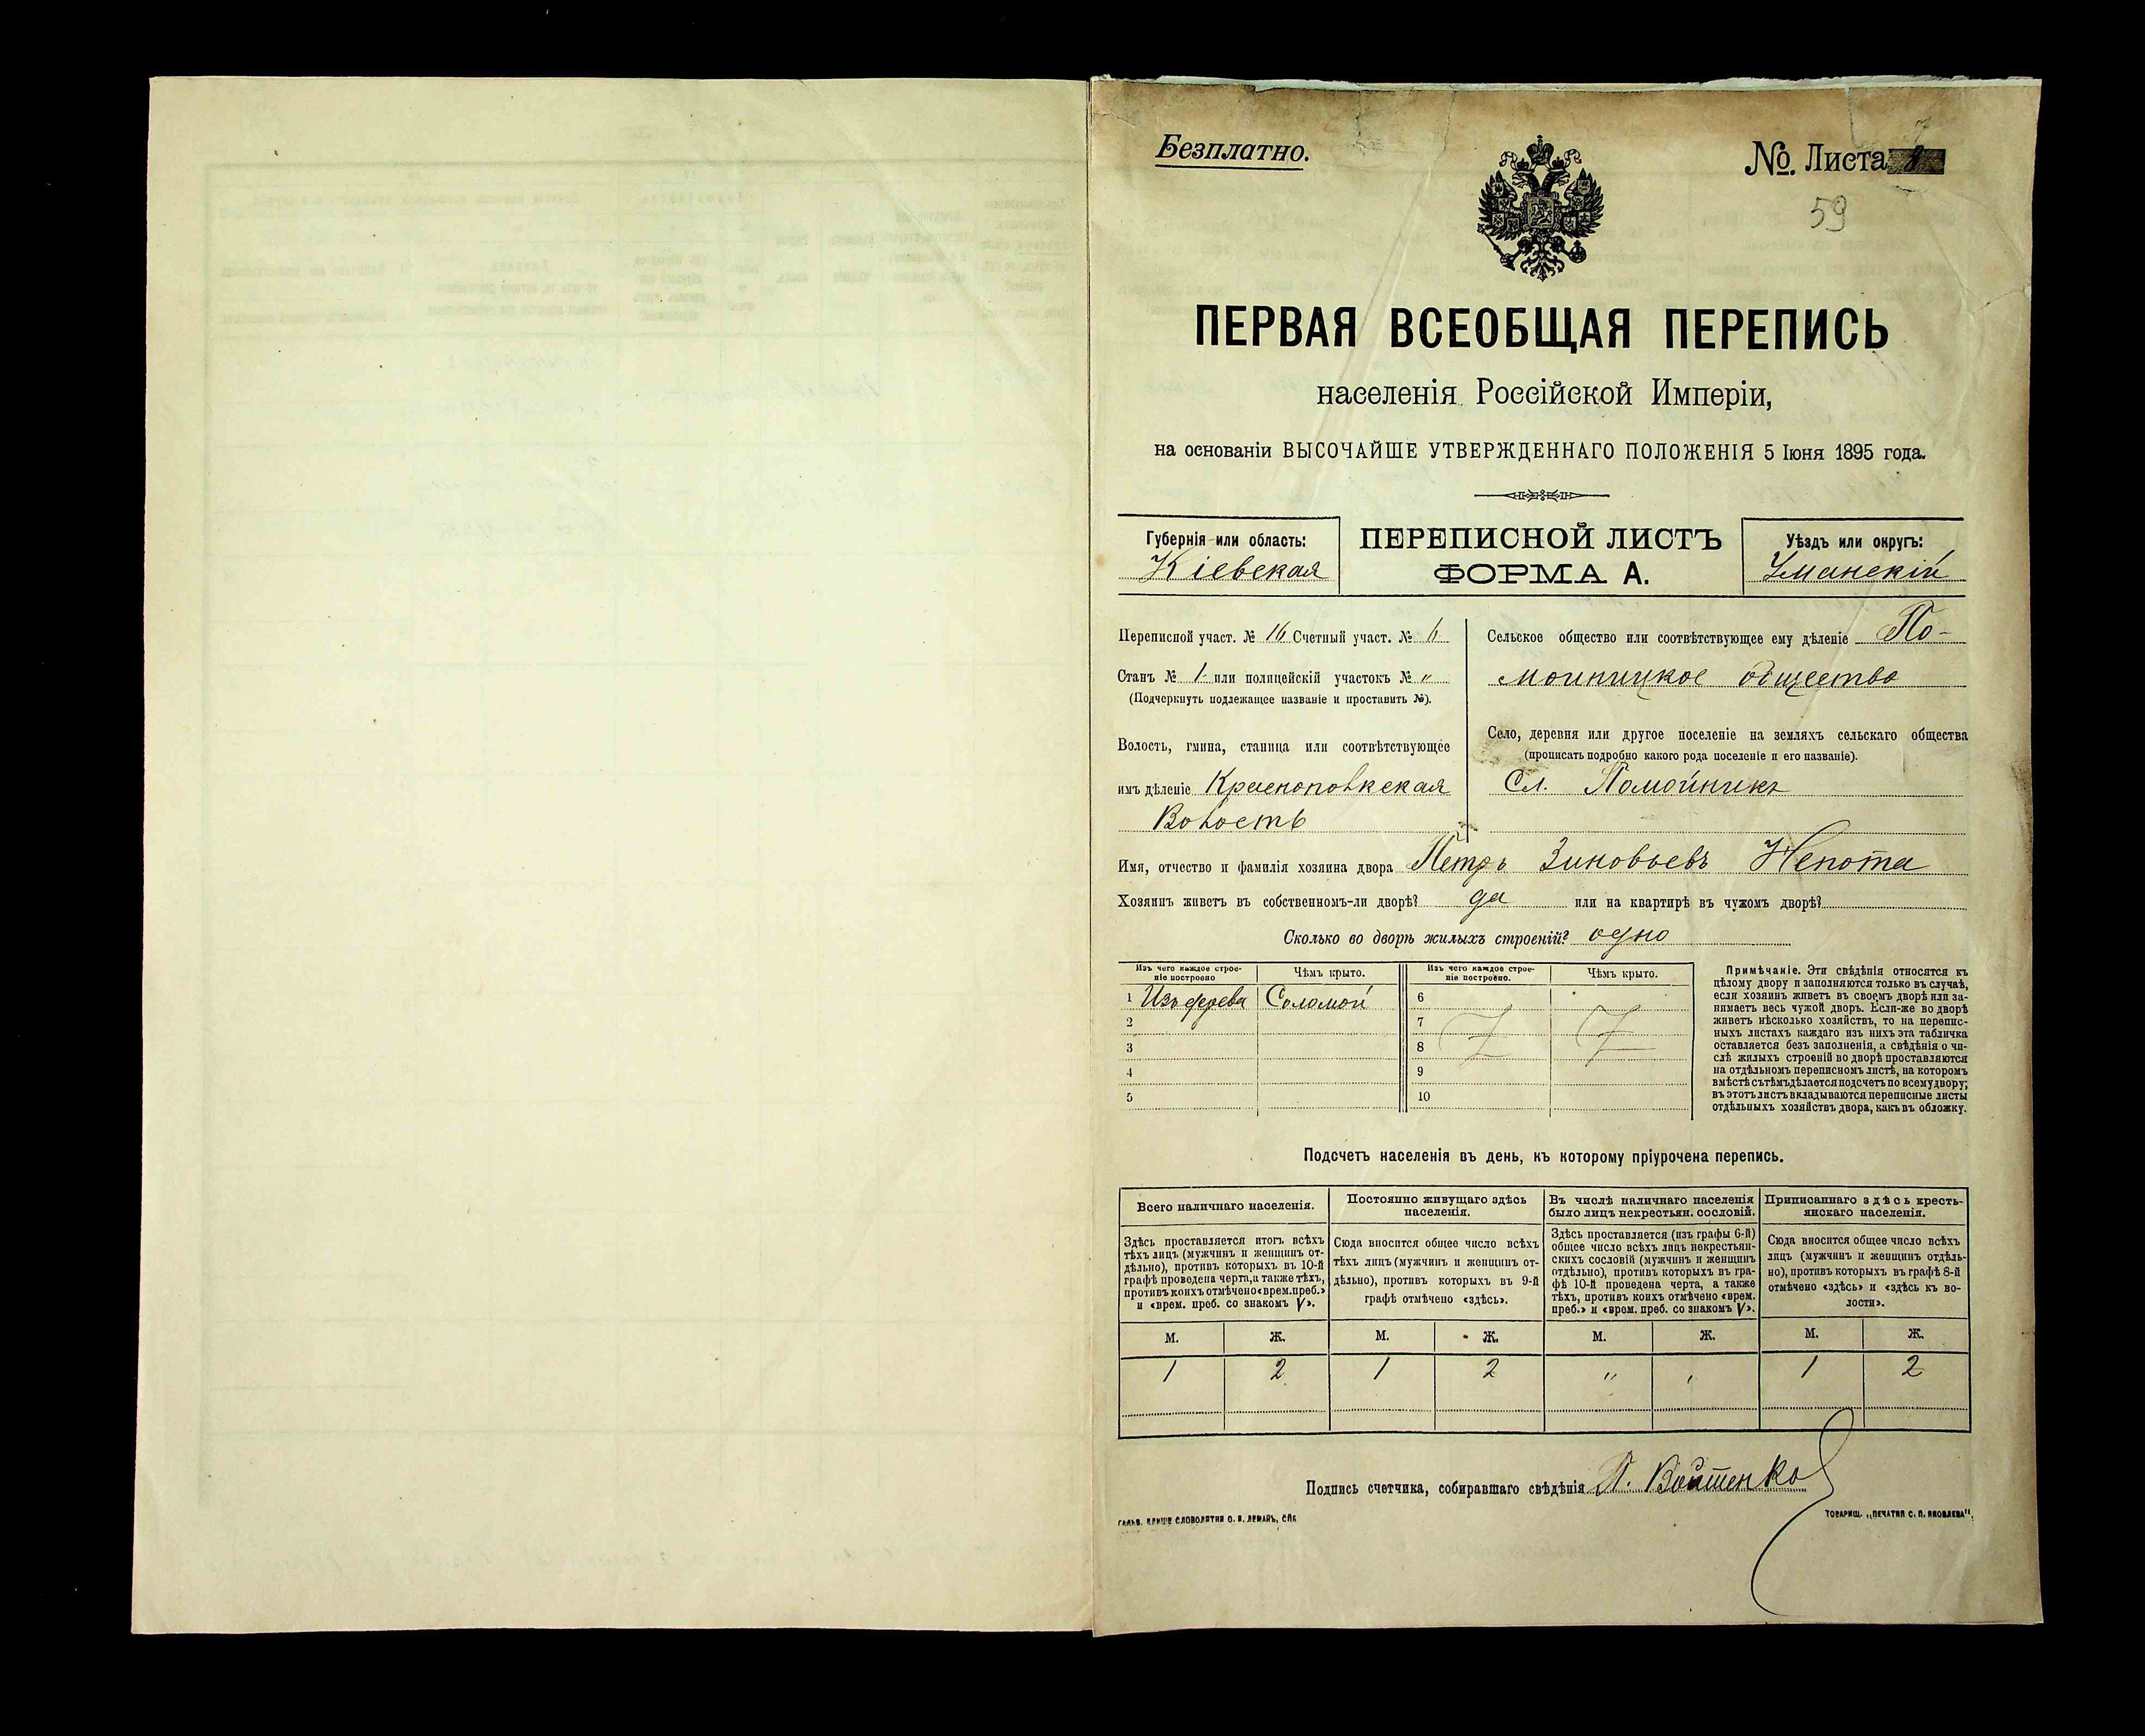 Безплатно.
№. Листа 8
7
59
ПЕРВАЯ ВСЕОБЩАЯ ПЕРЕПИСЬ
населенія Россійской Имперіи,
на основаніи ВЫСОЧАЙШЕ УТВЕРЖДЕННАГО ПОЛОЖЕНІЯ 5 Іюня 1895 года.
Губернія или область:
Кіевская
ПЕРЕПИСНОЙ ЛИСТЪ
ФОРМА А.
Уѣздъ или округъ:
Уманскій
Переписной участ. № 16 Счетный участ. № 6
Станъ № 1 или полицейскій участокъ № „
(Подчеркнуть подлежащее названіе и проставить №).
Волость, гмина, станица или соотвѣтствующее
имъ дѣленіе Краснополкская
Волость
Сельское общество или соотвѣтствующее ему дѣленіе По-
мойницкое общество
Село, деревня или другое поселеніе на земляхъ сельскаго общества
(прописать подробно какого рода поселеніе и его названіе).
Сл. Помойникъ
Имя, отчество и фамилія хозяина двора Петръ Зиновьевъ Непота
Хозяинъ живетъ въ собственномъ-ли дворѣ? да или на квартирѣ въ чужомъ дворѣ?
Сколько во дворѣ жилыхъ строеній? одно
Изъ чего каждое строе-
ніе построено
Чѣмъ крыто.
Изъ чего каждое строе-
ніе построено.
Чѣмъ крыто.
1 Изъ древа Соломой
2
3
4
5
6
7
8
9
10
Примѣчаніе. Эти свѣдѣнія относятся къ
цѣлому двору и заполняются только въ случаѣ,
если хозяинъ живетъ въ своемъ дворѣ или за-
нимаетъ весь чужой дворъ. Если-же во дворѣ
живетъ нѣсколько хозяйствъ, то на перепис-
ныхъ листахъ каждаго изъ нихъ эта табличка
оставляется безъ заполненія, а свѣдѣнія о чи-
слѣ жилыхъ строеній во дворѣ проставляются
на отдѣльномъ переписномъ листѣ, на которомъ
вмѣстѣ съ тѣмъ дѣлается подсчетъ по всему двору;
въ этотъ листъ вкладываются переписные листы
отдѣльныхъ хозяйствъ двора, какъ въ обложку.
Подсчетъ населенія въ день, къ которому пріурочена перепись.
Всего наличнаго населенія.
Постоянно живущаго здѣсь
населенія.
Въ числѣ наличнаго населенія
было лицъ некрестьян. сословій.
Приписаннаго здѣсь кресть-
янскаго населенія.
Здѣсь проставляется итогъ всѣхъ
тѣхъ лицъ (мужчинъ и женщинъ от-
дѣльно), противъ которыхъ въ 10-й
графѣ проведена черта, а также тѣхъ,
противъ коихъ отмѣчено «врем. преб.»
и «врем. преб. со знакомъ V».
Сюда вносится общее число всѣхъ
тѣхъ лицъ (мужчинъ и женщинъ от-
дѣльно), противъ которыхъ въ 9-й
графѣ отмѣчено «здѣсь».
Здѣсь проставляется (изъ графы 6-й)
общее число всѣхъ лицъ некрестьян-
скихъ сословій (мужчинъ и женщинъ
отдѣльно), противъ которыхъ въ гра-
фѣ 10-й проведена черта, а также
тѣхъ, противъ коихъ отмѣчено «врем.
преб.» и «врем. преб. со знакомъ V».
Сюда вносится общее число всѣхъ
лицъ (мужчинъ и женщинъ отдѣль-
но), противъ которыхъ въ графѣ 8-й
отмѣчено «здѣсь» и «здѣсь къ во-
лости».
М. Ж. М. Ж. М. Ж. М. Ж.
1 2 1 2 „ „ 1 2
Подпись счетчика, собиравшаго свѣдѣнія П. Войтенко
ГАЛЬВ. КЛИШЕ СЛОВОЛИТНИ О. И. ЛЕМАНЪ, СПБ.
ТОВАРИЩ. „ПЕЧАТНИ С. П. ЯКОВЛЕВА".